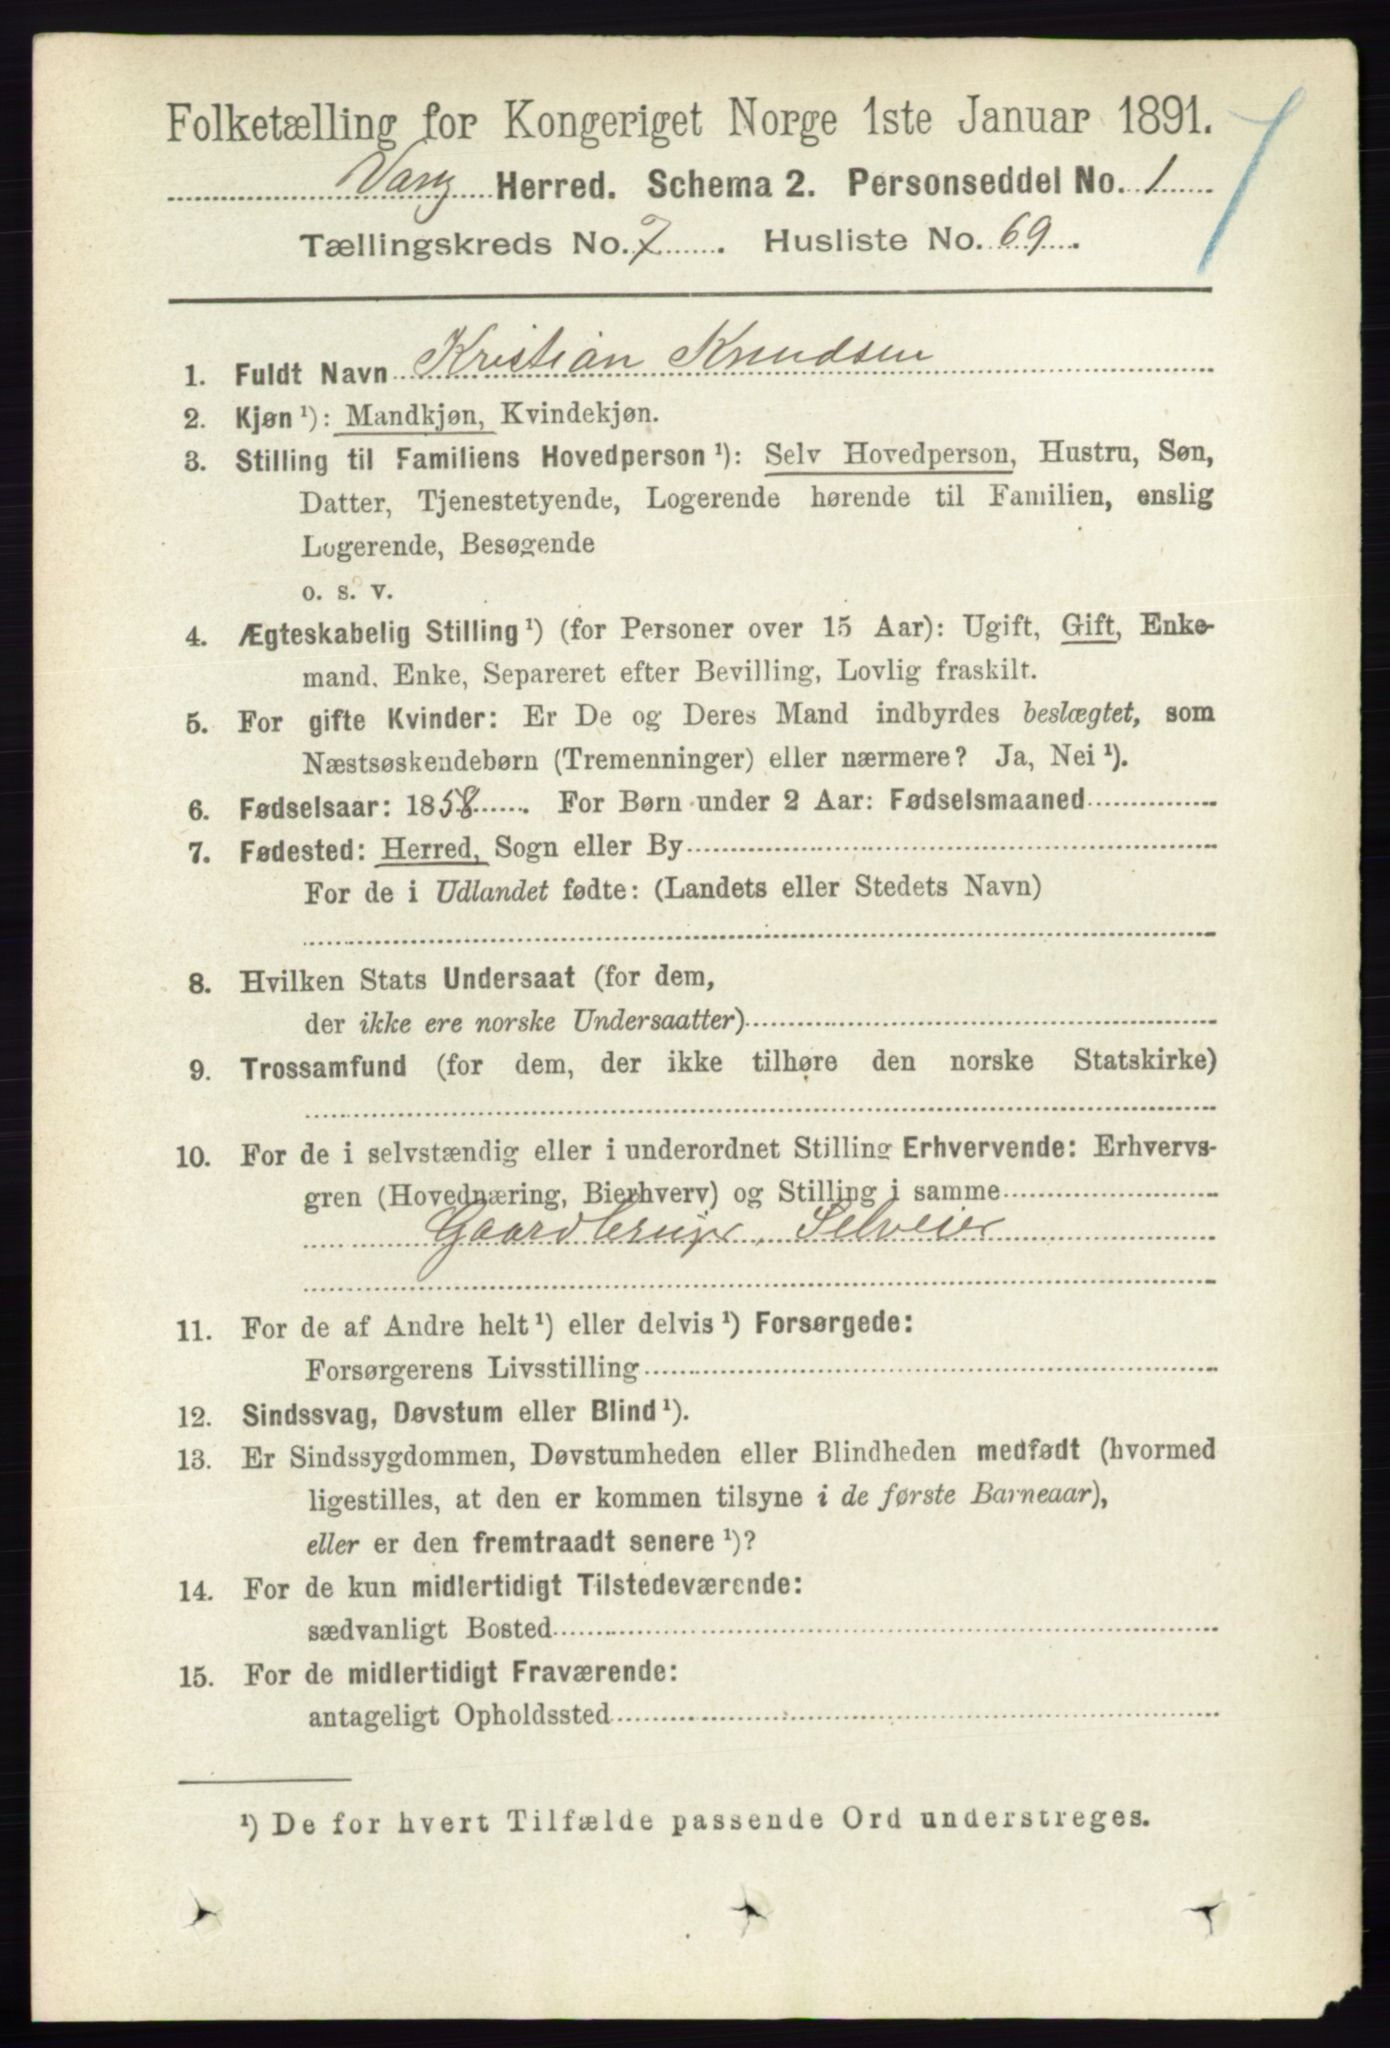 Folketælling for Kongeriget Norge 1ste Januar 1891.
Vang Herred. Schema 2. Personseddel No. 1
Tællingskreds No. 7. Husliste No. 69.
1. Fuldt Navn Kristian Knudsen
2. Kjøn ¹): Mandkjøn, Kvindekjøn.
3. Stilling til Familiens Hovedperson ¹): Selv Hovedperson, Hustru, Søn,
Datter, Tjenestetyende, Logerende hørende til Familien, enslig
Logerende, Besøgende
o. s. v.
4. Ægteskabelig Stilling ¹) (for Personer over 15 Aar): Ugift, Gift, Enke-
mand, Enke, Separeret efter Bevilling, Lovlig fraskilt.
5. For gifte Kvinder: Er De og Deres Mand indbyrdes beslægtet, som
Næstsøskendebørn (Tremenninger) eller nærmere? Ja, Nei ¹).
6. Fødselsaar: 1858. For Børn under 2 Aar: Fødselsmaaned
7. Fødested: Herred, Sogn eller By
For de i Udlandet fødte: (Landets eller Stedets Navn)
8. Hvilken Stats Undersaat (for dem,
der ikke ere norske Undersaatter)
9. Trossamfund (for dem, der ikke tilhøre den norske Statskirke)
10. For de i selvstændig eller i underordnet Stilling Erhvervende: Erhvervs-
gren (Hovednæring, Bierhverv) og Stilling i samme
Gaardbruger, Selveier
11. For de af Andre helt ¹) eller delvis ¹) Forsørgede:
Forsørgerens Livsstilling
12. Sindssvag, Døvstum eller Blind ¹).
13. Er Sindssygdommen, Døvstumheden eller Blindheden medfødt (hvormed
ligestilles, at den er kommen tilsyne i de første Barneaar),
eller er den fremtraadt senere ¹)?
14. For de kun midlertidigt Tilstedeværende:
sædvanligt Bosted
15. For de midlertidigt Fraværende:
antageligt Opholdssted
¹) De for hvert Tilfælde passende Ord understreges.